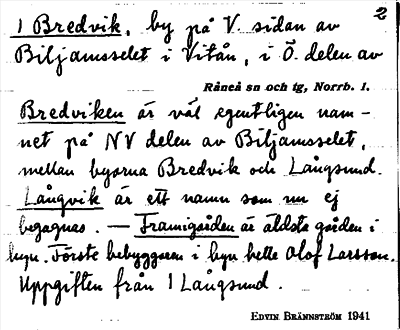 2
1 Bredvik, by på V. sidan av
Biljamsselet i Vitån, i Ö. delen av
Råneå sn och tg, Norrb. l.
Bredviken är väl egentligen nam-
net på NV delen av Biljamsselet,
mellan byarna Bredvik och Långsund.
Långvik är ett namn som nu ej
begagnas. — Framigården är äldsta gården i
byn. Förste bebyggaren i byn hette Olof Larsson.
Uppgiften från 1 Långsund.
EDVIN BRÄNNSTRÖM 1941